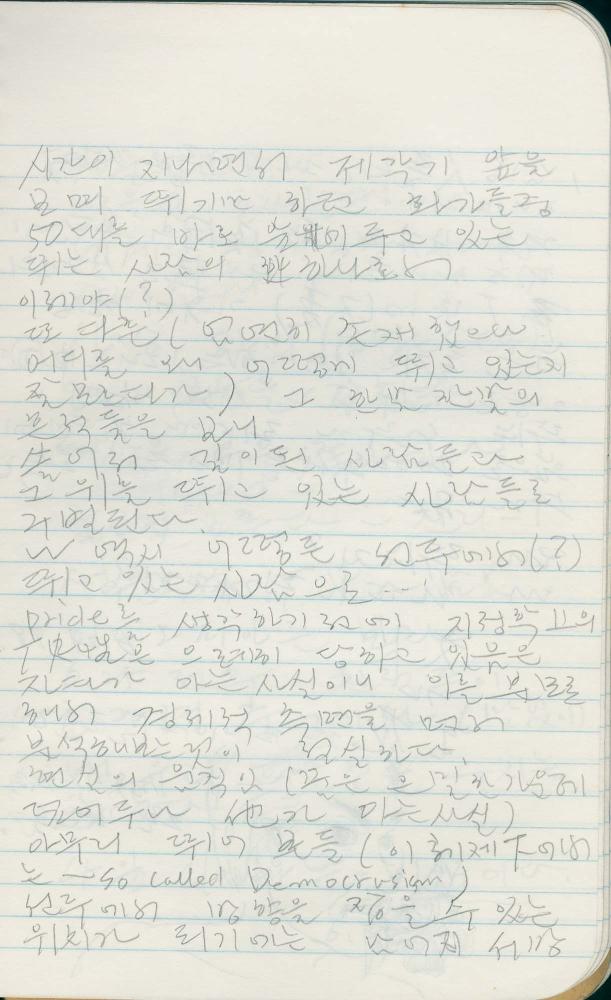 시간이 지나면서 제각기 앞을
보며 뛰기만 하던 화가들중
50대를 바로 눈앞에 두고 있는
뛰는 사람의 하나로서
이래야(?)
또 다른( 엄연히 존재 했으나
어디를 왜 어떻게 뛰고 있는지
잘모르다가) 그 한발 한발의
흔적들을 보니
쓸어져 깊이된 사람들과
그 위를 뛰고 있는 사람들로
구별된다.
나 역시 어떻든 선두에서(?)
뛰고 있는 사람으로…
pride를 생각하기 전에 지정학上의
은 으례히 당하고 있음은
자타가 아는 사실이니 이를
해서 경제적 측면을 먼저
분석해보는것이 현실하다.
현실의 움직임 (깊은 은밀한가운데
他가 아는사실)
아무리 뛰어 본들 (이 체제下에서
는 — so called Democrasism)
선두에서 방향을 잡을 수 있는
위치가 되기에는 세상